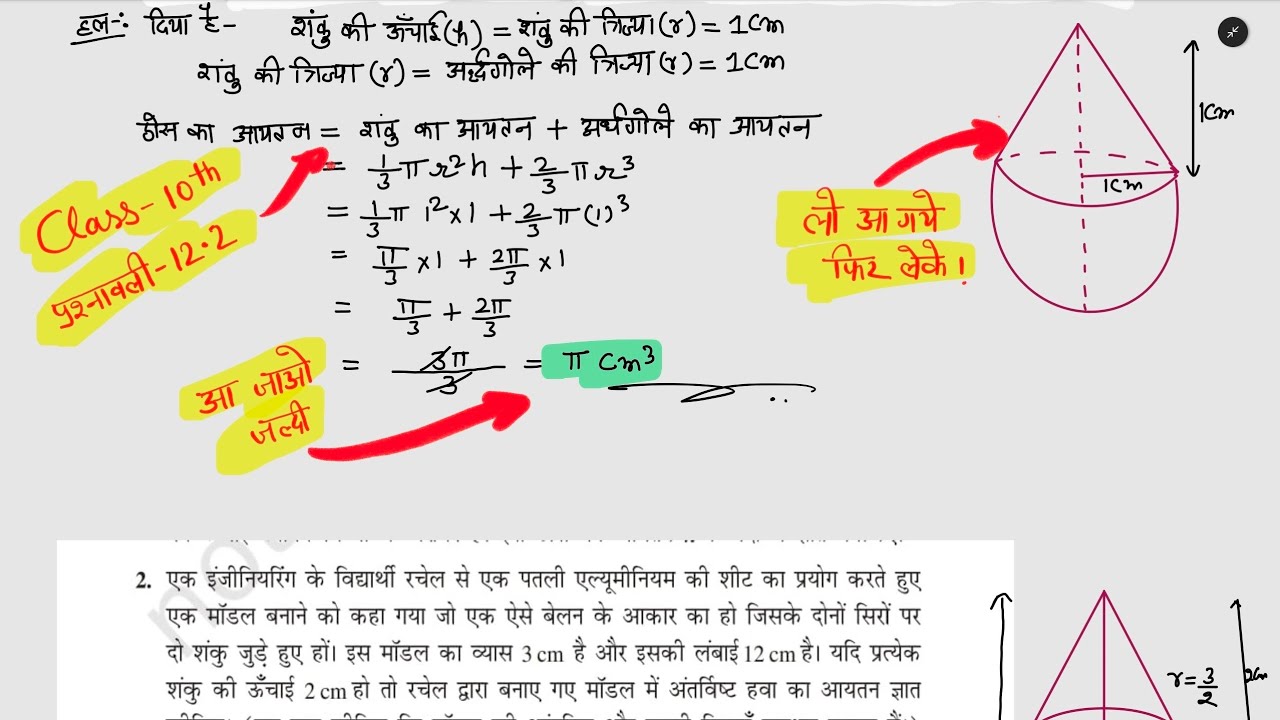 हल:- दिया है- शंकु की ऊँचाई(h) = शंकु की त्रिज्या(r) = 1cm
शंकु की त्रिज्या (r) = अर्द्धगोले की त्रिज्या(r) = 1cm
ठोस का आयतन = शंकु का आयतन + अर्धगोले का आयतन
= 1/3 π r²h + 2/3 π r³
= 1/3 π 1² × 1 + 2/3 π (1)³
= π/3 × 1 + 2π/3 × 1
= π/3 + 2π/3
= 3π/3 = π cm³
Class-10th
प्रश्नावली-12.2
आ जाओ
जल्दी
लो आ गये
फिर लेके!
1cm
1cm
2. एक इंजीनियरिंग के विद्यार्थी रचेल से एक पतली एल्यूमीनियम की शीट का प्रयोग करते हुए
एक मॉडल बनाने को कहा गया जो एक ऐसे बेलन के आकार का हो जिसके दोनों सिरों पर
दो शंकु जुड़े हुए हों। इस मॉडल का व्यास 3 cm है और इसकी लंबाई 12 cm है। यदि प्रत्येक
शंकु की ऊँचाई 2 cm हो तो रचेल द्वारा बनाए गए मॉडल में अंतर्विष्ट हवा का आयतन ज्ञात
r = 3/2
2cm